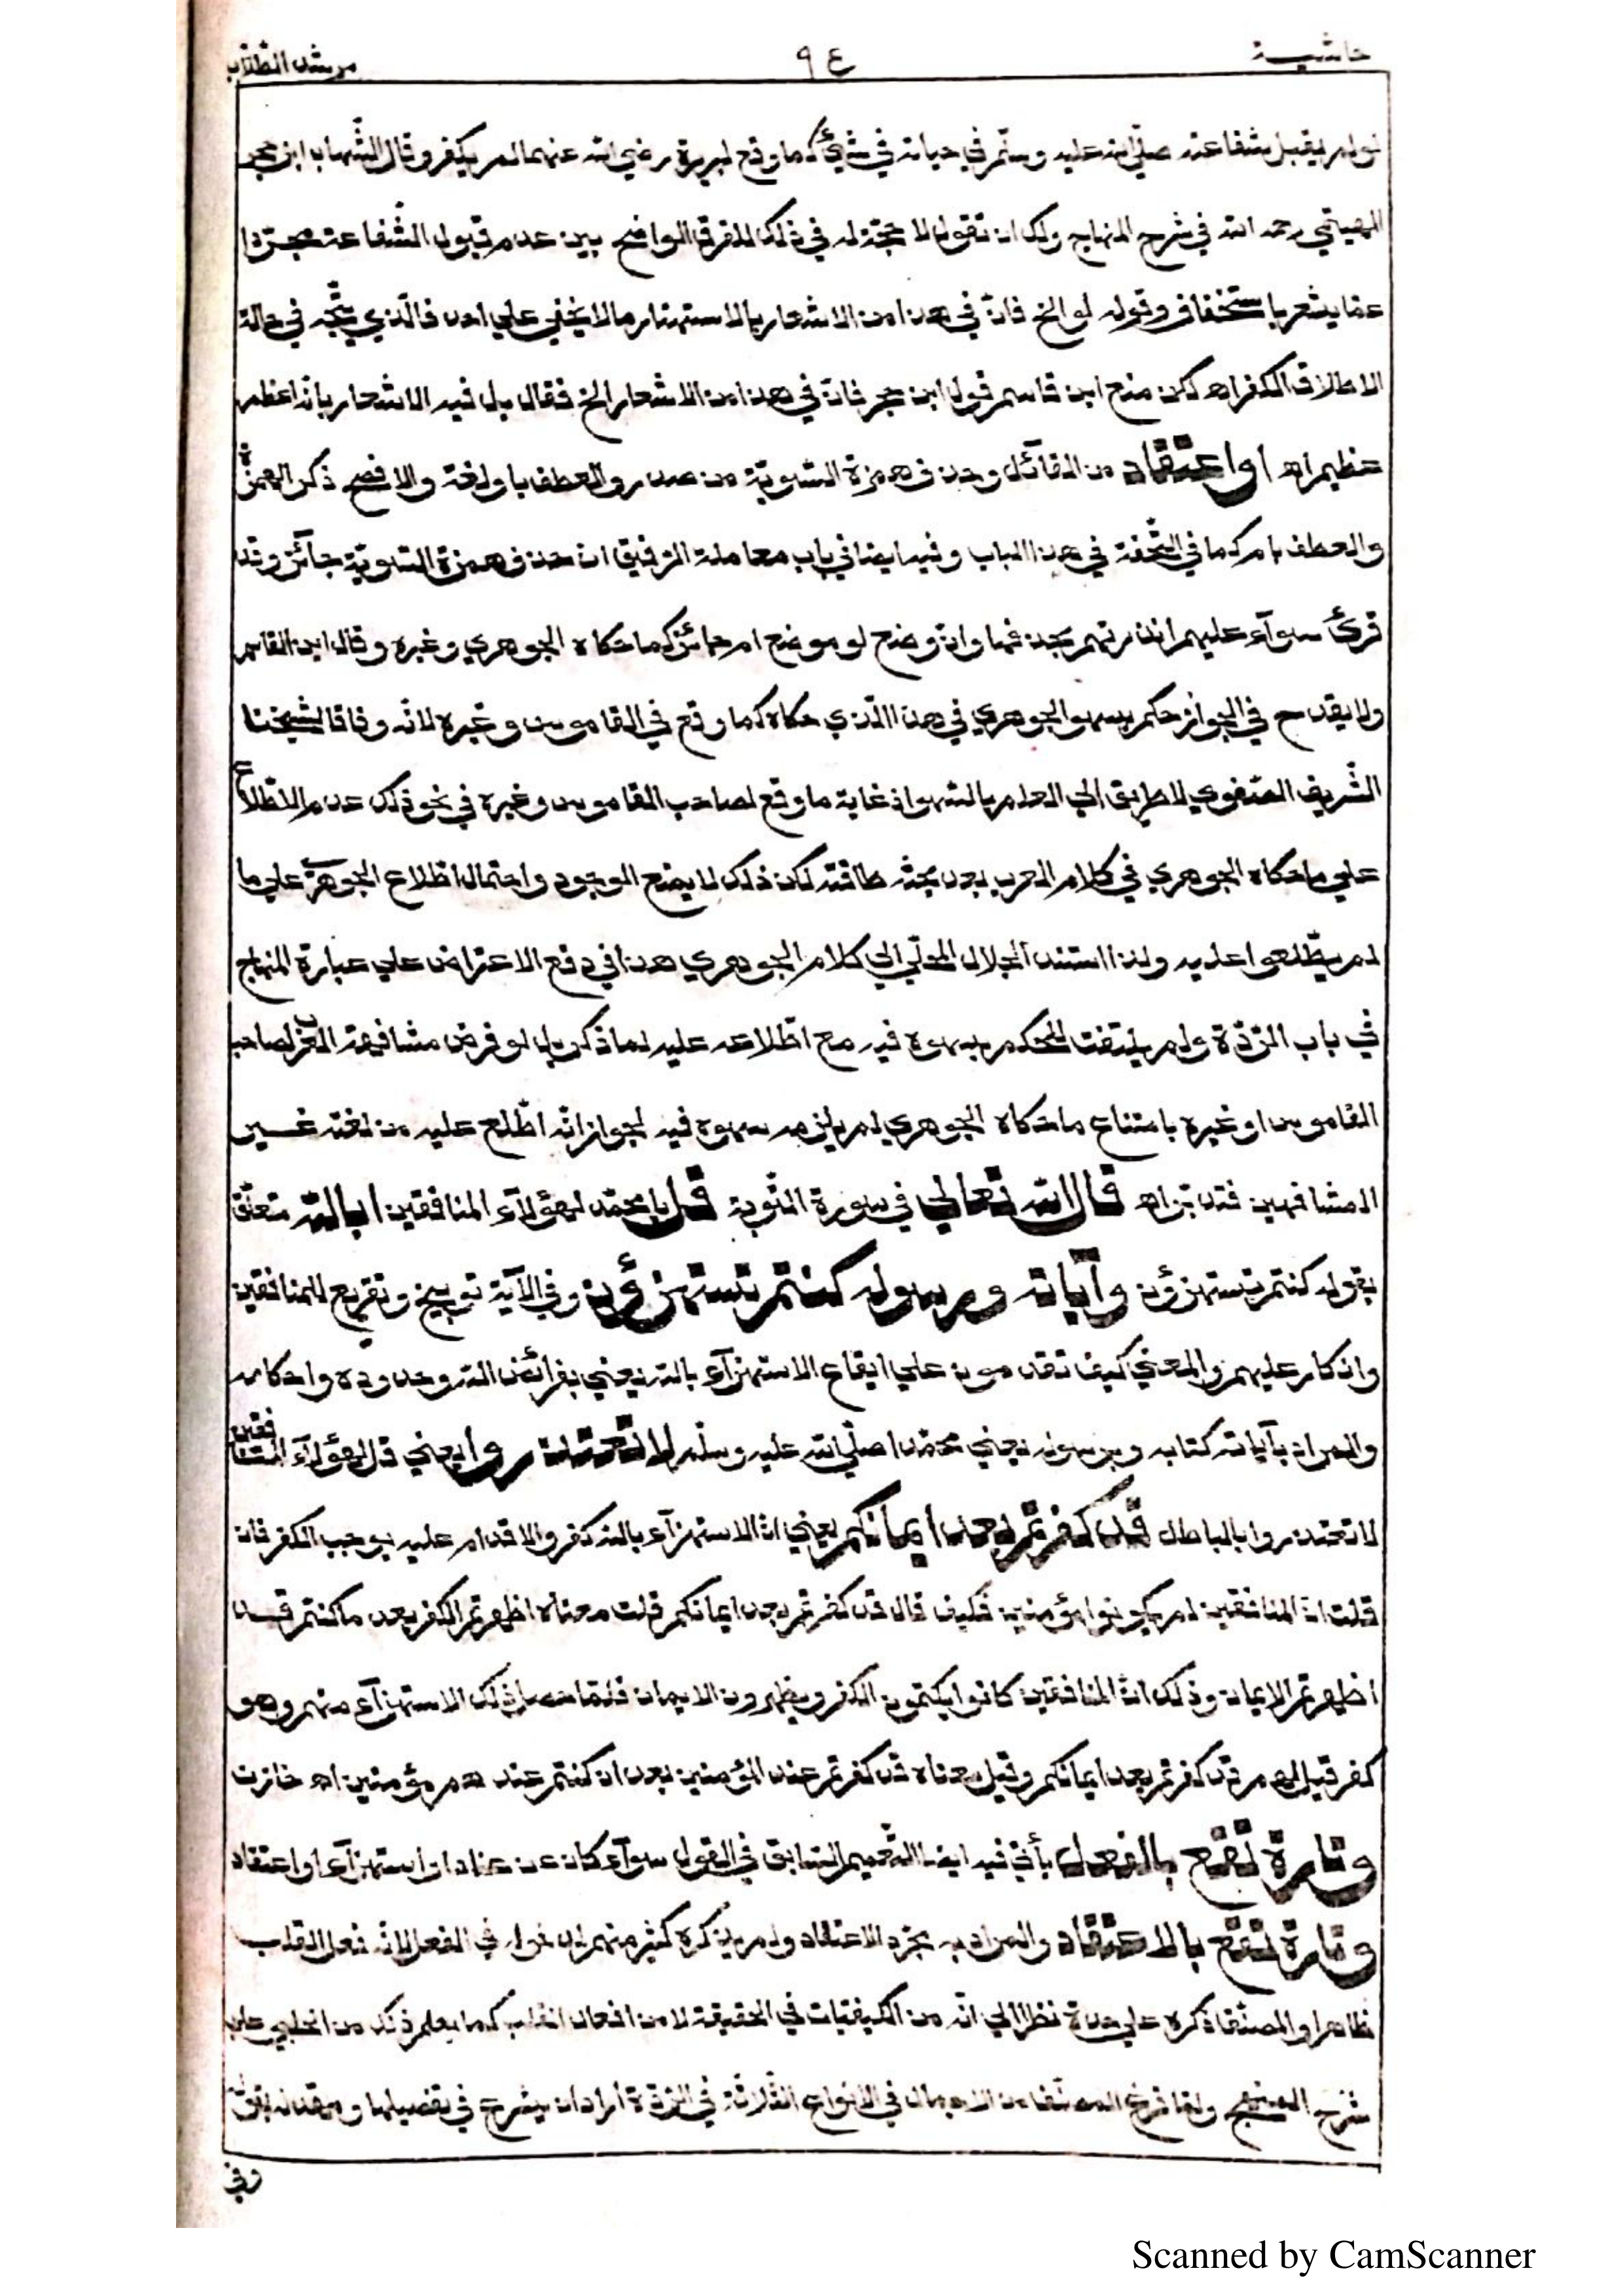 حاشية
٩٤
مرشد الطلاب
لو لم يقبل شفاعته صلى الله عليه وسلم في حياته في شيئ كما وقع لبريرة رضي الله عنها لم يكفر وقال الشهاب ابن حجر
الهيتمي رحمه الله في شرح المنهاج ولك ان تقول لا حجة له في ذلك للفرق الواضح بين عدم قبول الشفاعة مجردا
عما يشعر باستخفاف وقوله لو الخ فانّ في هذا من الاشعار بالاستهتار ما لا يخفي علي احد فالّذي يتّجه في حالة
الاطلاق الكفر اهـ لكن منع ابن قاسم قول ابن حجر فانّ في هذا من الاشعار الخ فقال بل فيه الاشعار بانّه اعظم
عظيم اهـ او اعتقاد من القائل وحذف همزة التسوية من صدره والعطف باو لغة والافصح ذكر الهمزة
والعطف بام كما في التّحفة في هذا الباب وفيه ايضا في باب معاملة الرقيق ان حذف همزة التسوية جائز وقد
قرئ سوآء عليهم انذرتهم بحذفها وان وضع او موضع ام جائز كما حكاه الجوهري وغيره وقال ابن القاسم
ولا يقدح في الجواز حكم بسهو الجوهري في هذا الّذي حكاه كما وقع في القاموس وغيره لانّه وفاقا لشيخنا
الشّريف الصّفوي لا طريق الي العلم بالسّهو اذ غاية ما وقع لصاحب القاموس وغيره في نحو ذلك عدم الاطّلاع
علي ما حكاه الجوهري في كلام العرب بعد بحثه طاقته لكن ذلك لا يمنع الوجود واحتمال اطّلاع الجوهري علي ما
لم يطّلعوا عليه ولذا استند الجلال المحلّي الي كلام الجوهري هذا في دفع الاعتراض علي عبارة المنهاج
في باب الرّدّة ولم يلتفت للحكم بسهوه فيه مع اطّلاعه عليه لما ذكر بل لو فرض مشافهة العرب لصاحب
القاموس او غيره بامتناع ما حكاه الجوهري لم يلزم سهوه فيه لجواز انّه اطّلع عليه من لغة غير
المشافهين فتدبّر اهـ قال الله تعالي في سورة التّوبة قل يا محمّد لهؤلآء المنافقين ابالله متعلّق
بقوله كنتم تستهزؤن وآياته ورسوله كنتم تستهزؤن وفي الآية توبيخ وتقريع للمنافقين
وانكار عليهم والمعني كيف تقدمون علي ايقاع الاستهزآء بالله يعني بفرائض الله وحدوده واحكامه
والمراد بآياته كتابه وبرسوله يعني محمّدا صلّي الله عليه وسلّم لا تعتذروا يعني قل لهؤلآء المنافقين
لا تعتذروا بالباطل قد كفرتم بعد ايمانكم يعني انّ الاستهزآء بالله كفر والاقدام عليه يوجب الكفر فان
قلت انّ المنافقين لم يكونوا مؤمنين فكيف قال قد كفرتم بعد ايمانكم قلت معناه اظهرتم الكفر بعد ما كنتم قد
اظهرتم الايمان وذلك انّ المنافقين كانوا يكتمون الكفر ويظهرون الايمان فلمّا حصل ذلك الاستهزآء منهم وهو
كفر قيل لهم قد كفرتم بعد ايمانكم وقيل معناه قد كفرتم عند المؤمنين بعد ان كنتم عندهم مؤمنين اهـ خازن
وتارة تقع بالفعل يأتي فيه ايضا التّعميم السّابق في القول سوآء كان عن عناد او استهزآء او اعتقاد
وتارة تقع بالاعتقاد والمراد به مجرّد الاعتقاد ولم يذكره كثير منهم لدخوله في الفعل لانّه فعل القلب
ظاهرا والمصنّف ذكره علي حدة نظرا الي انّه من الكيفيّات في الحقيقة لا من افعال القلب كما يعلم ذلك من الحلبي علي
شرح المنهج ولمّا فرغ المصنّف من الاجمال في الانواع الثّلاثة في الرّدّة أراد ان يشرع في تفصيلها